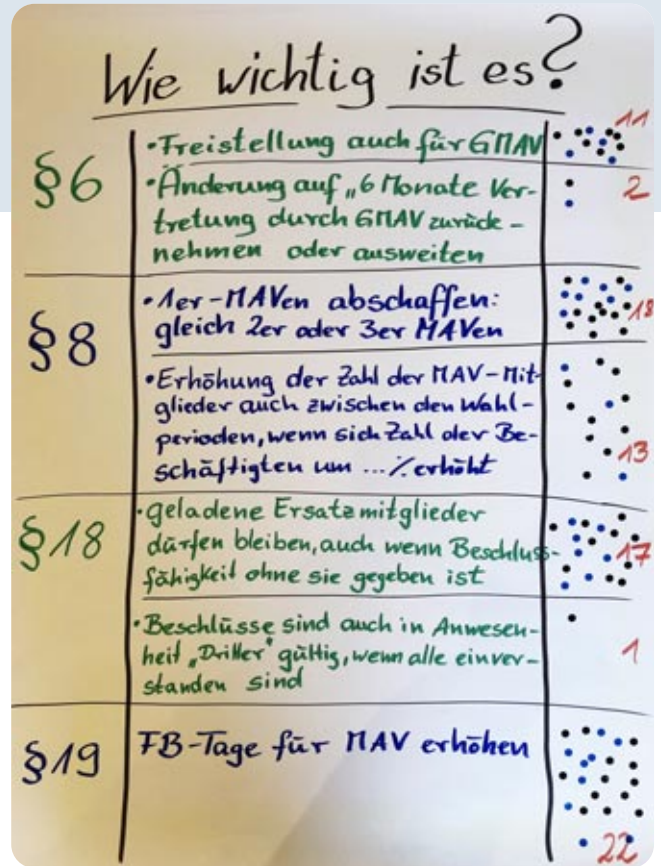 Wie wichtig ist es?
§6
• Freistellung auch für GMAV
11
• Änderung auf „6 Monate Ver-
tretung durch GMAV zurück-
nehmen oder ausweiten
2
§8
• 1er-MAVen abschaffen:
gleich 2er oder 3er MAVen
18
• Erhöhung der Zahl der MAV-Mit-
glieder auch zwischen den Wahl-
perioden, wenn sich Zahl der Be-
schäftigten um ... % erhöht
13
§18
• geladene Ersatzmitglieder
dürfen bleiben, auch wenn Beschluss-
fähigkeit ohne sie gegeben ist
17
• Beschlüsse sind auch in Anwesen-
heit „Dritter" gültig, wenn alle einver-
standen sind
1
§19
FB-Tage für MAV erhöhen
22